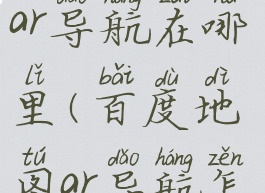 ar导航在哪
lǐ bǎi dù dì
里(百度地
tú dǎo háng zěn
图ar导航怎